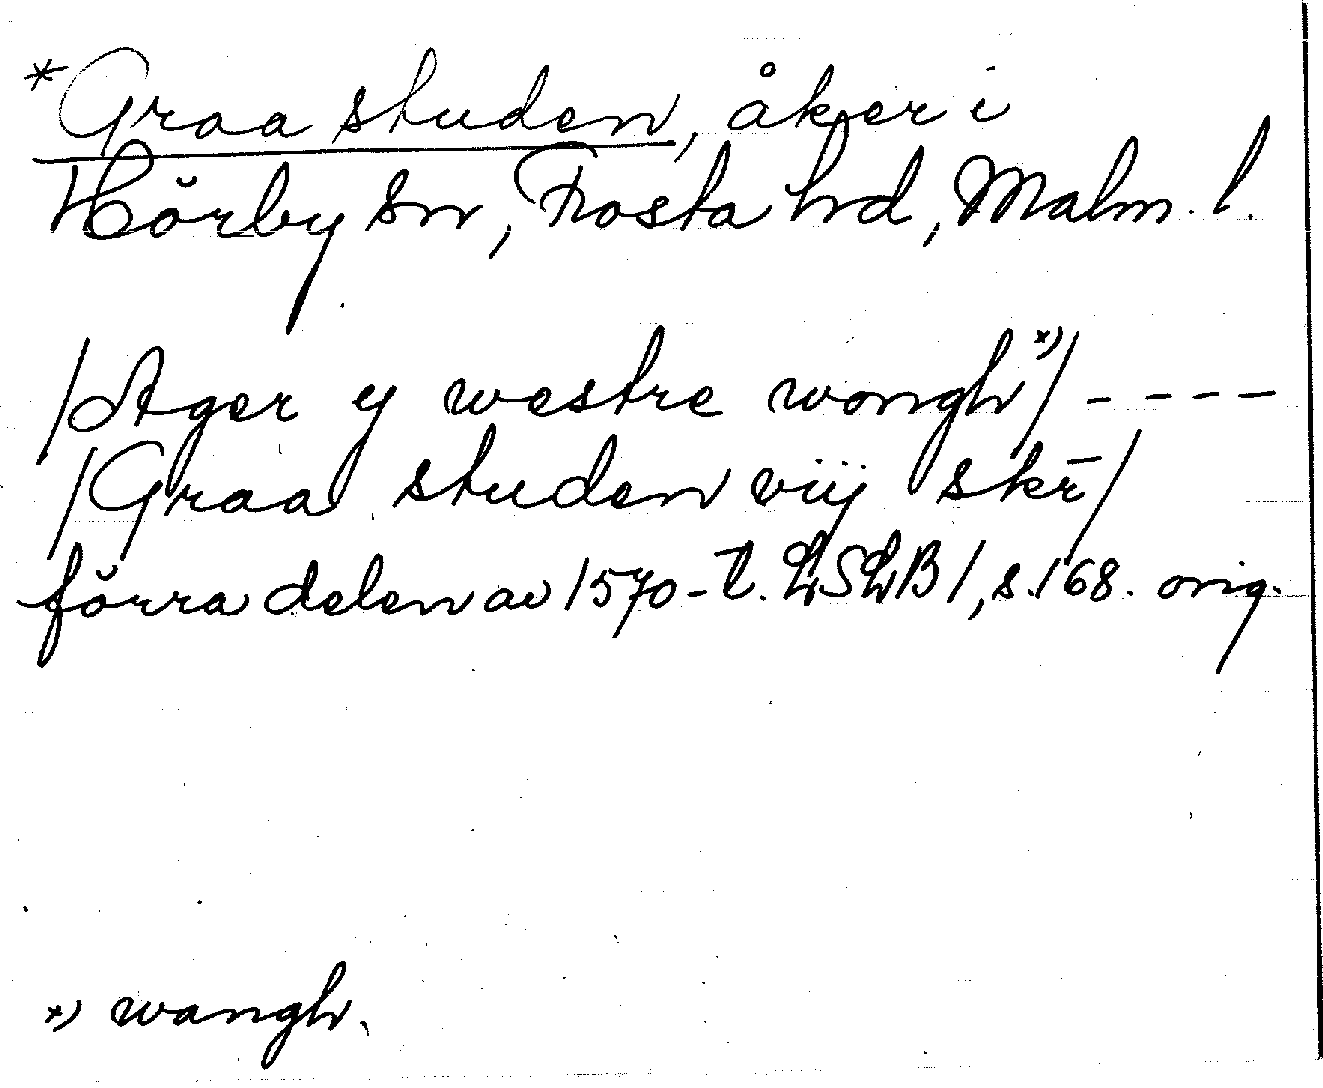 *Graa studen, åker i
Hörby sn, Frosta hd, Malm. l.
/Ager y westre wongh*)/ - - - -
/Graa studen viij skr̄/
förra delen av 1570-t. LSLB 1, s. 168. orig.
*) wangh.